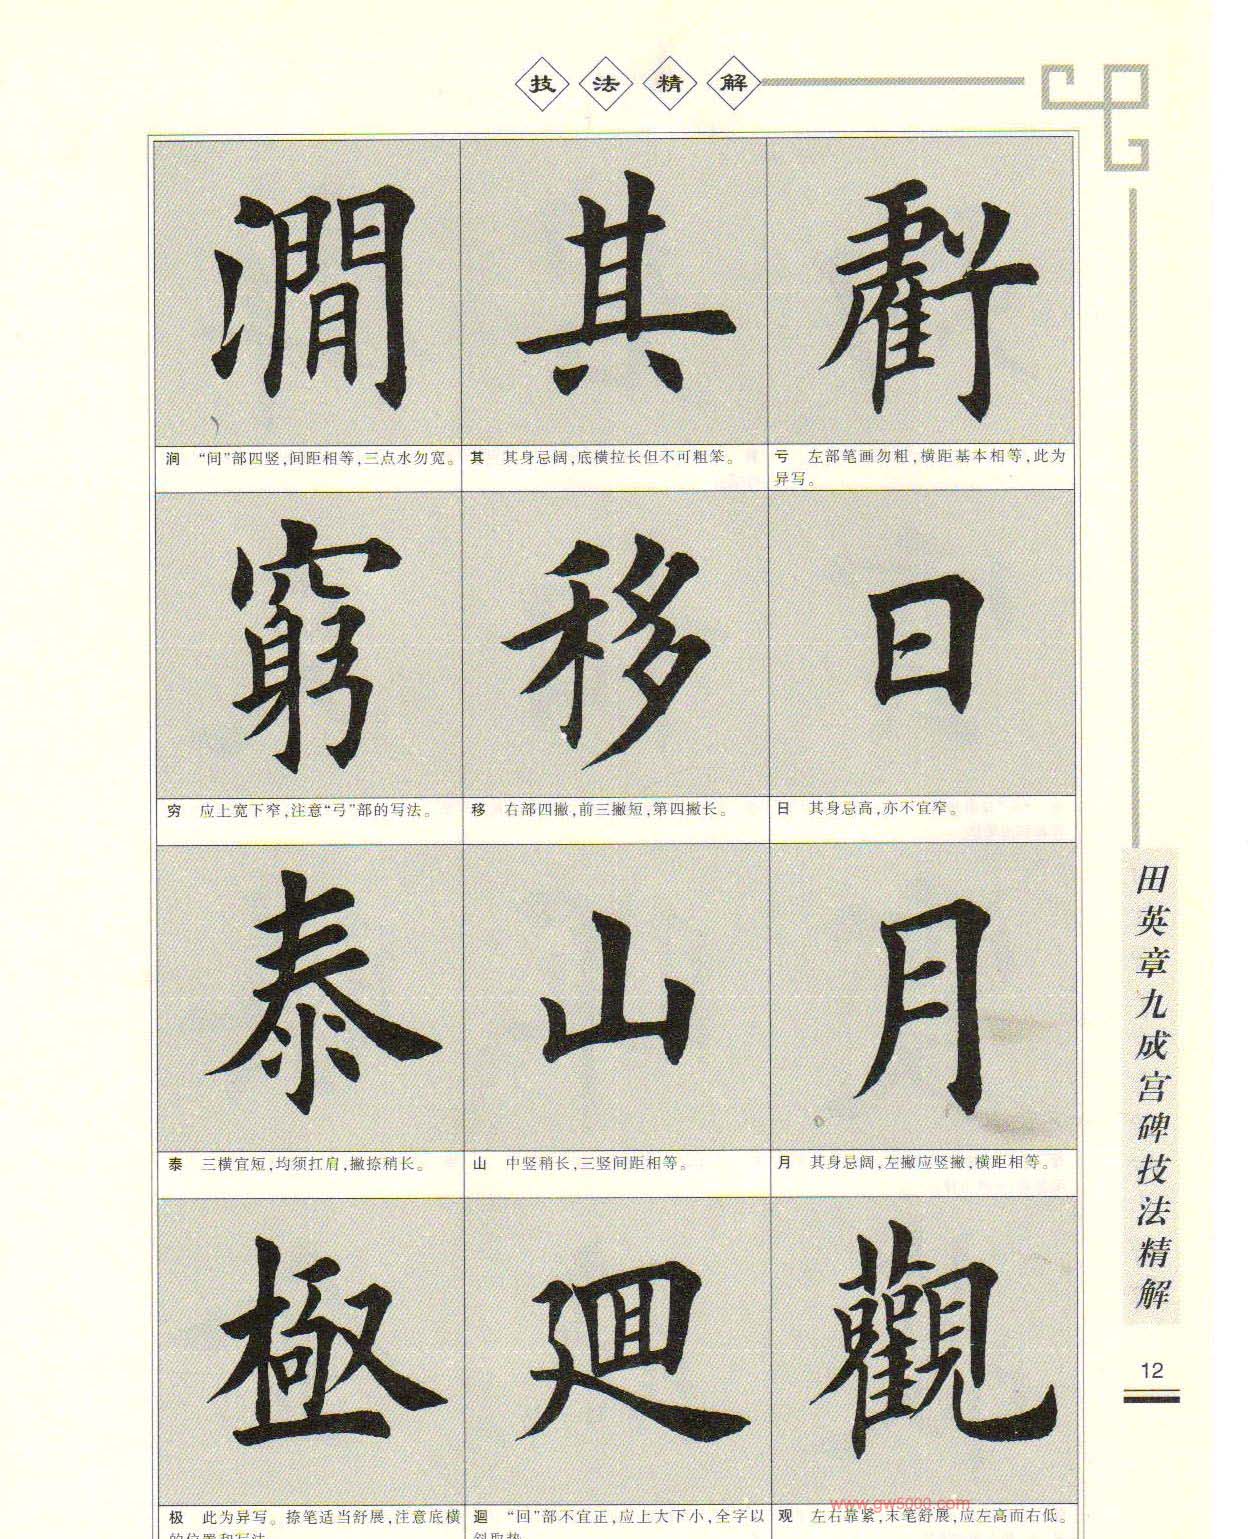 技法精解
澗 其 虧
涧 “间”部四竖,间距相等,三点水勿宽。
其 其身忌阔,底横拉长但不可粗笨。
亏 左部笔画勿粗,横距基本相等,此为
异写。
窮 移 日
穷 应上宽下窄,注意“弓”部的写法。
移 右部四撇,前三撇短,第四撇长。
日 其身忌高,亦不宜窄。
泰 山 月
泰 三横宜短,均须扛肩,撇捺稍长。
山 中竖稍长,三竖间距相等。
月 其身忌阔,左撇应竖撇,横距相等。
極 迴 觀
极 此为异写。捺笔适当舒展,注意底横
的位置和写法
迴 “回”部不宜正,应上大下小,全字以
斜取势
观 左右靠紧,末笔舒展,应左高而右低。
www.gw5000.com
田英章九成宫碑技法精解
12